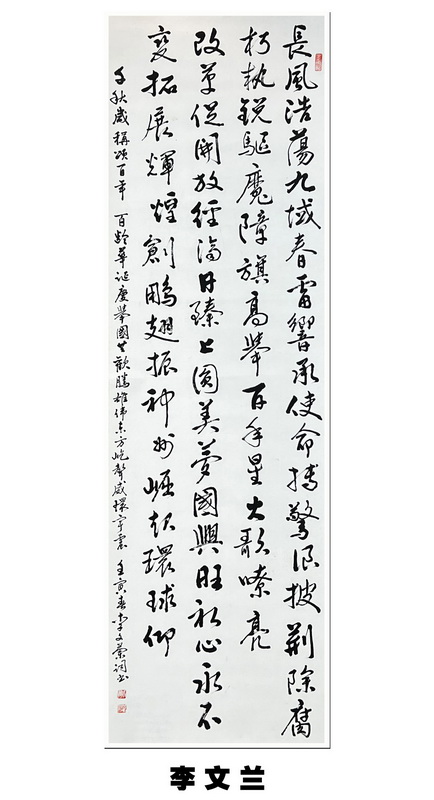 長風浩蕩九域春雷響承使命搏驚浪披荆除腐
朽執銳驅魔障旗高舉百年星火歌嘹亮
改革促開放經濟日臻上圓美夢國興旺初心永不
変拓展輝煌創鵬翅振神州崛起環球仰
千秋歲 稱頌百年 百齡華誕慶舉國共歡騰雄偉東方屹聲威環宇震 壬寅春李文蘭詞書
李文兰